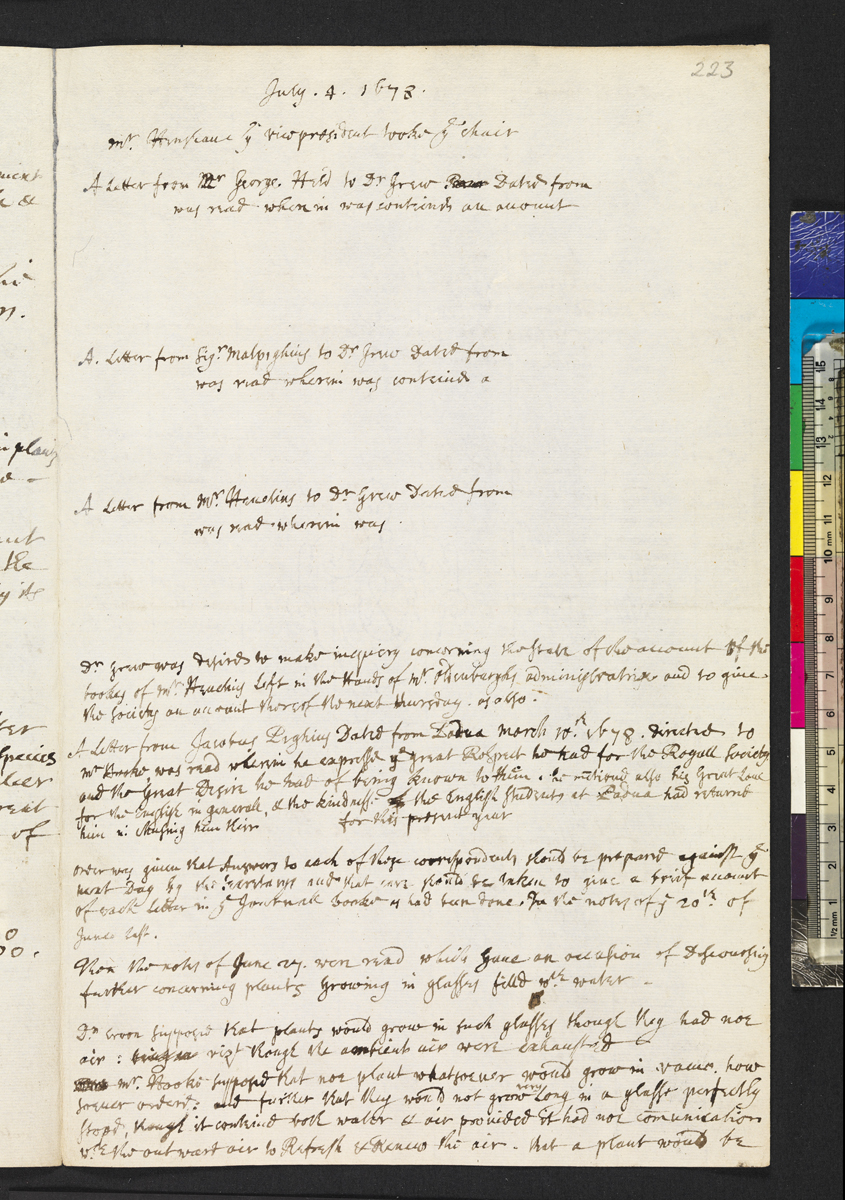 223
July . 4 . 1678 .
mr. Henshaw ye vicepresident tooke ye chair
A Letter from Mr George . Held to Dr Grew Dated from
was read wherein was conteind an account
A . Letter from Sigr. Malpighius to Dr Grew Dated from
was read wherein was conteind a
A Letter from Mr. Heuelius to Dr Grew Dated from
was read wherein was .
Dr Grew was desired to make inquiry concerning the state of the account of the
bookes of Mr. Heuelius Left in the Hands of Mr. Oldenburghs administratrix and to giue
the society an account thereof the next thursday . as also .
A Letter from Jacobus Pighius Dated from Padua march 10th. 1678 . directed to
Mr Hooke was read wherein he expressd ye great Respect he had for the Royall Society
and the Great Desire he had of being known to them . he mentiond also his Great Loue
for the English in generall, & the kindness the English students at Padua had returnd
him in Making him their for this present year
order was given that Answers to each of these correspondents should be prepared against ye
next Day by the Secretarys and that care should be taken to giue a brief account
of each Letter in ye Journall booke as had been done In the notes of ye 20th of
June last .
Then the notes of June 27. were read which gaue an occasion of Discoursing
further concerning plants growing in glasses filld wth water -
Dr. Croon supposd that plants would grow in such glasses though they had noe
air : vizt though the ambient air were exhausted
mr. Hooke supposed that noe plant whatsoeuer would grow in vacuo . how
soeuer orderd ; and further that they would not grow very Long in a glasse perfectly
stopd, though it conteind both water & air prouided it had noe comunication
wth the outward air to Refresh & Renew the air . that a plant would be